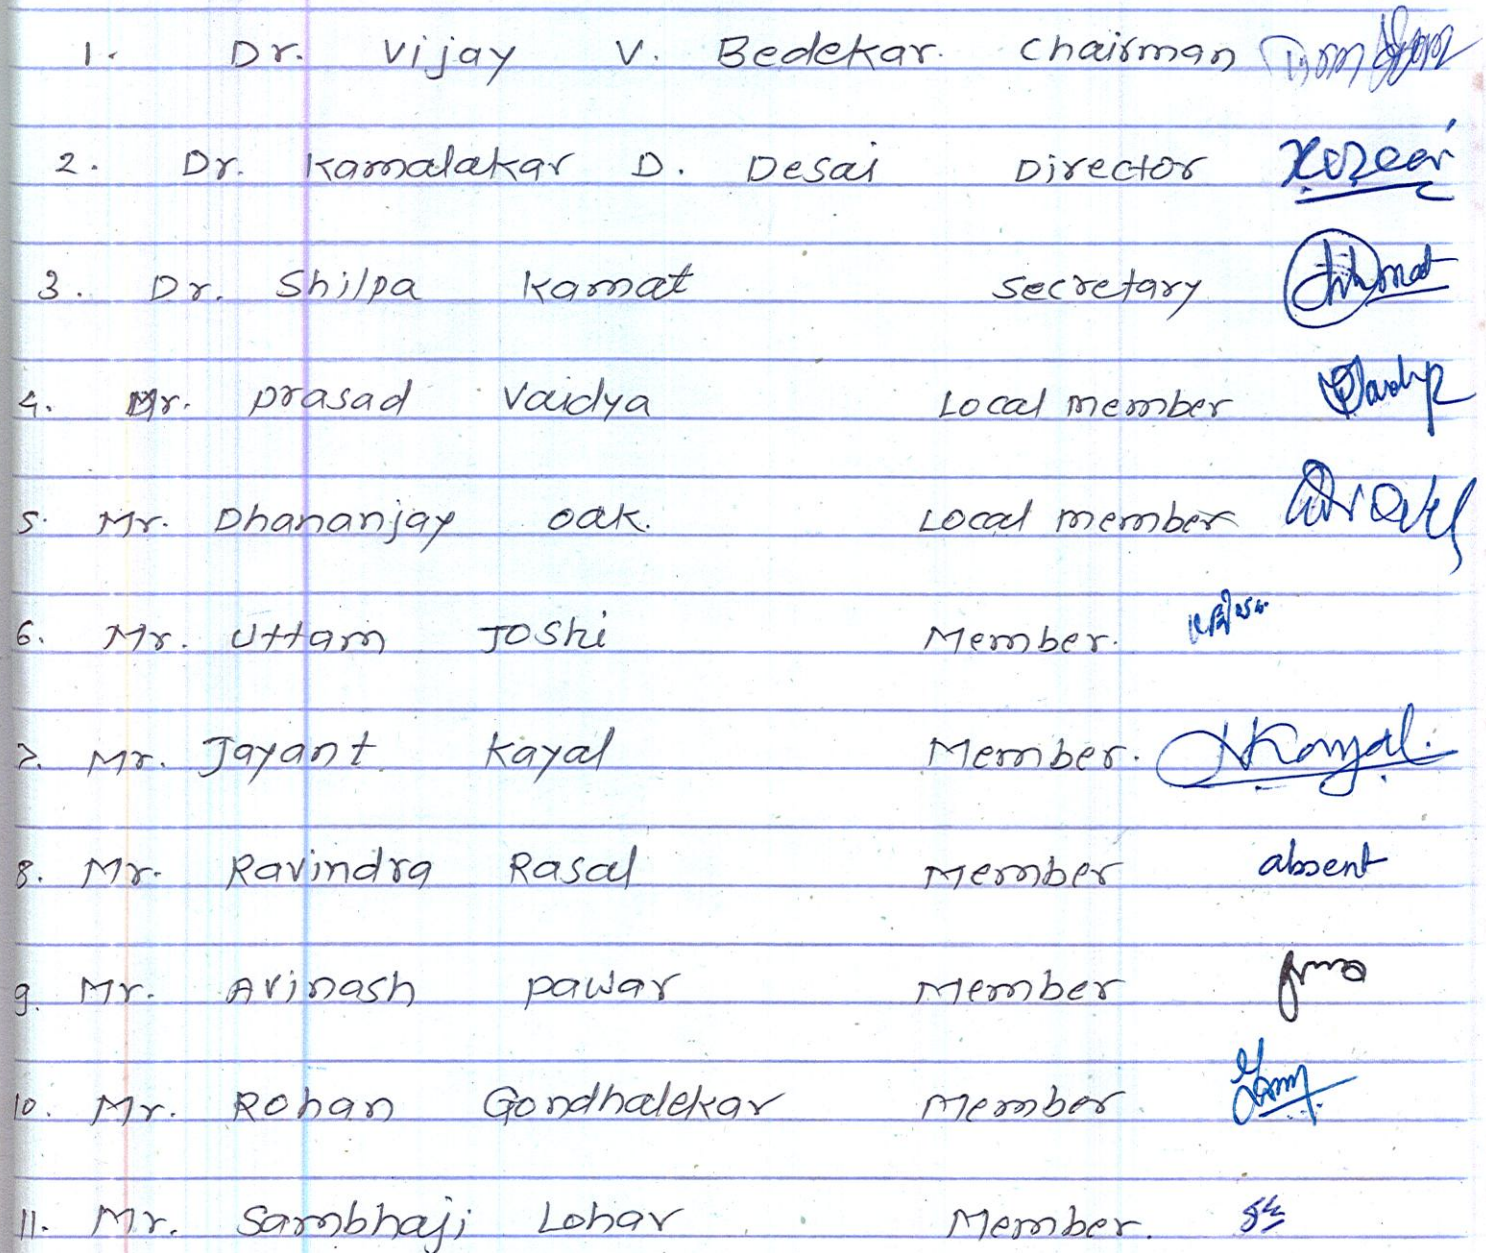 1. Dr. Vijay V. Bedekar. Chairman
2. Dr. Kamalakar D. Desai Director
3. Dr. Shilpa Kamat Secretary
4. Mr. Prasad Vaidya Local member
5. Mr. Dhananjay Oak. Local member
6. Mr. Uttam Joshi Member.
7. Mr. Jayant Kayal Member. Kayal.
8. Mr. Ravindra Rasal Member absent
9. Mr. Avinash Pawar Member
10. Mr. Rohan Gondhalekar Member
11. Mr. Sambhaji Lohar Member.